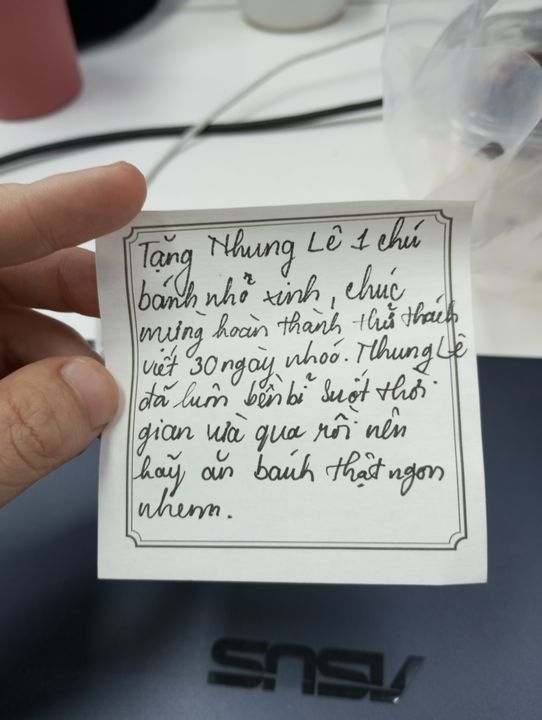 Tặng Nhung Lê 1 chú
bánh nhỏ xinh, chúc
mừng hoàn thành thử thách
viết 30 ngày nhóo. Nhung Lê
đã luôn bền bỉ suốt thời
gian vừa qua rồi nên
hãy ăn bánh thật ngon
nhemm.
ASUS